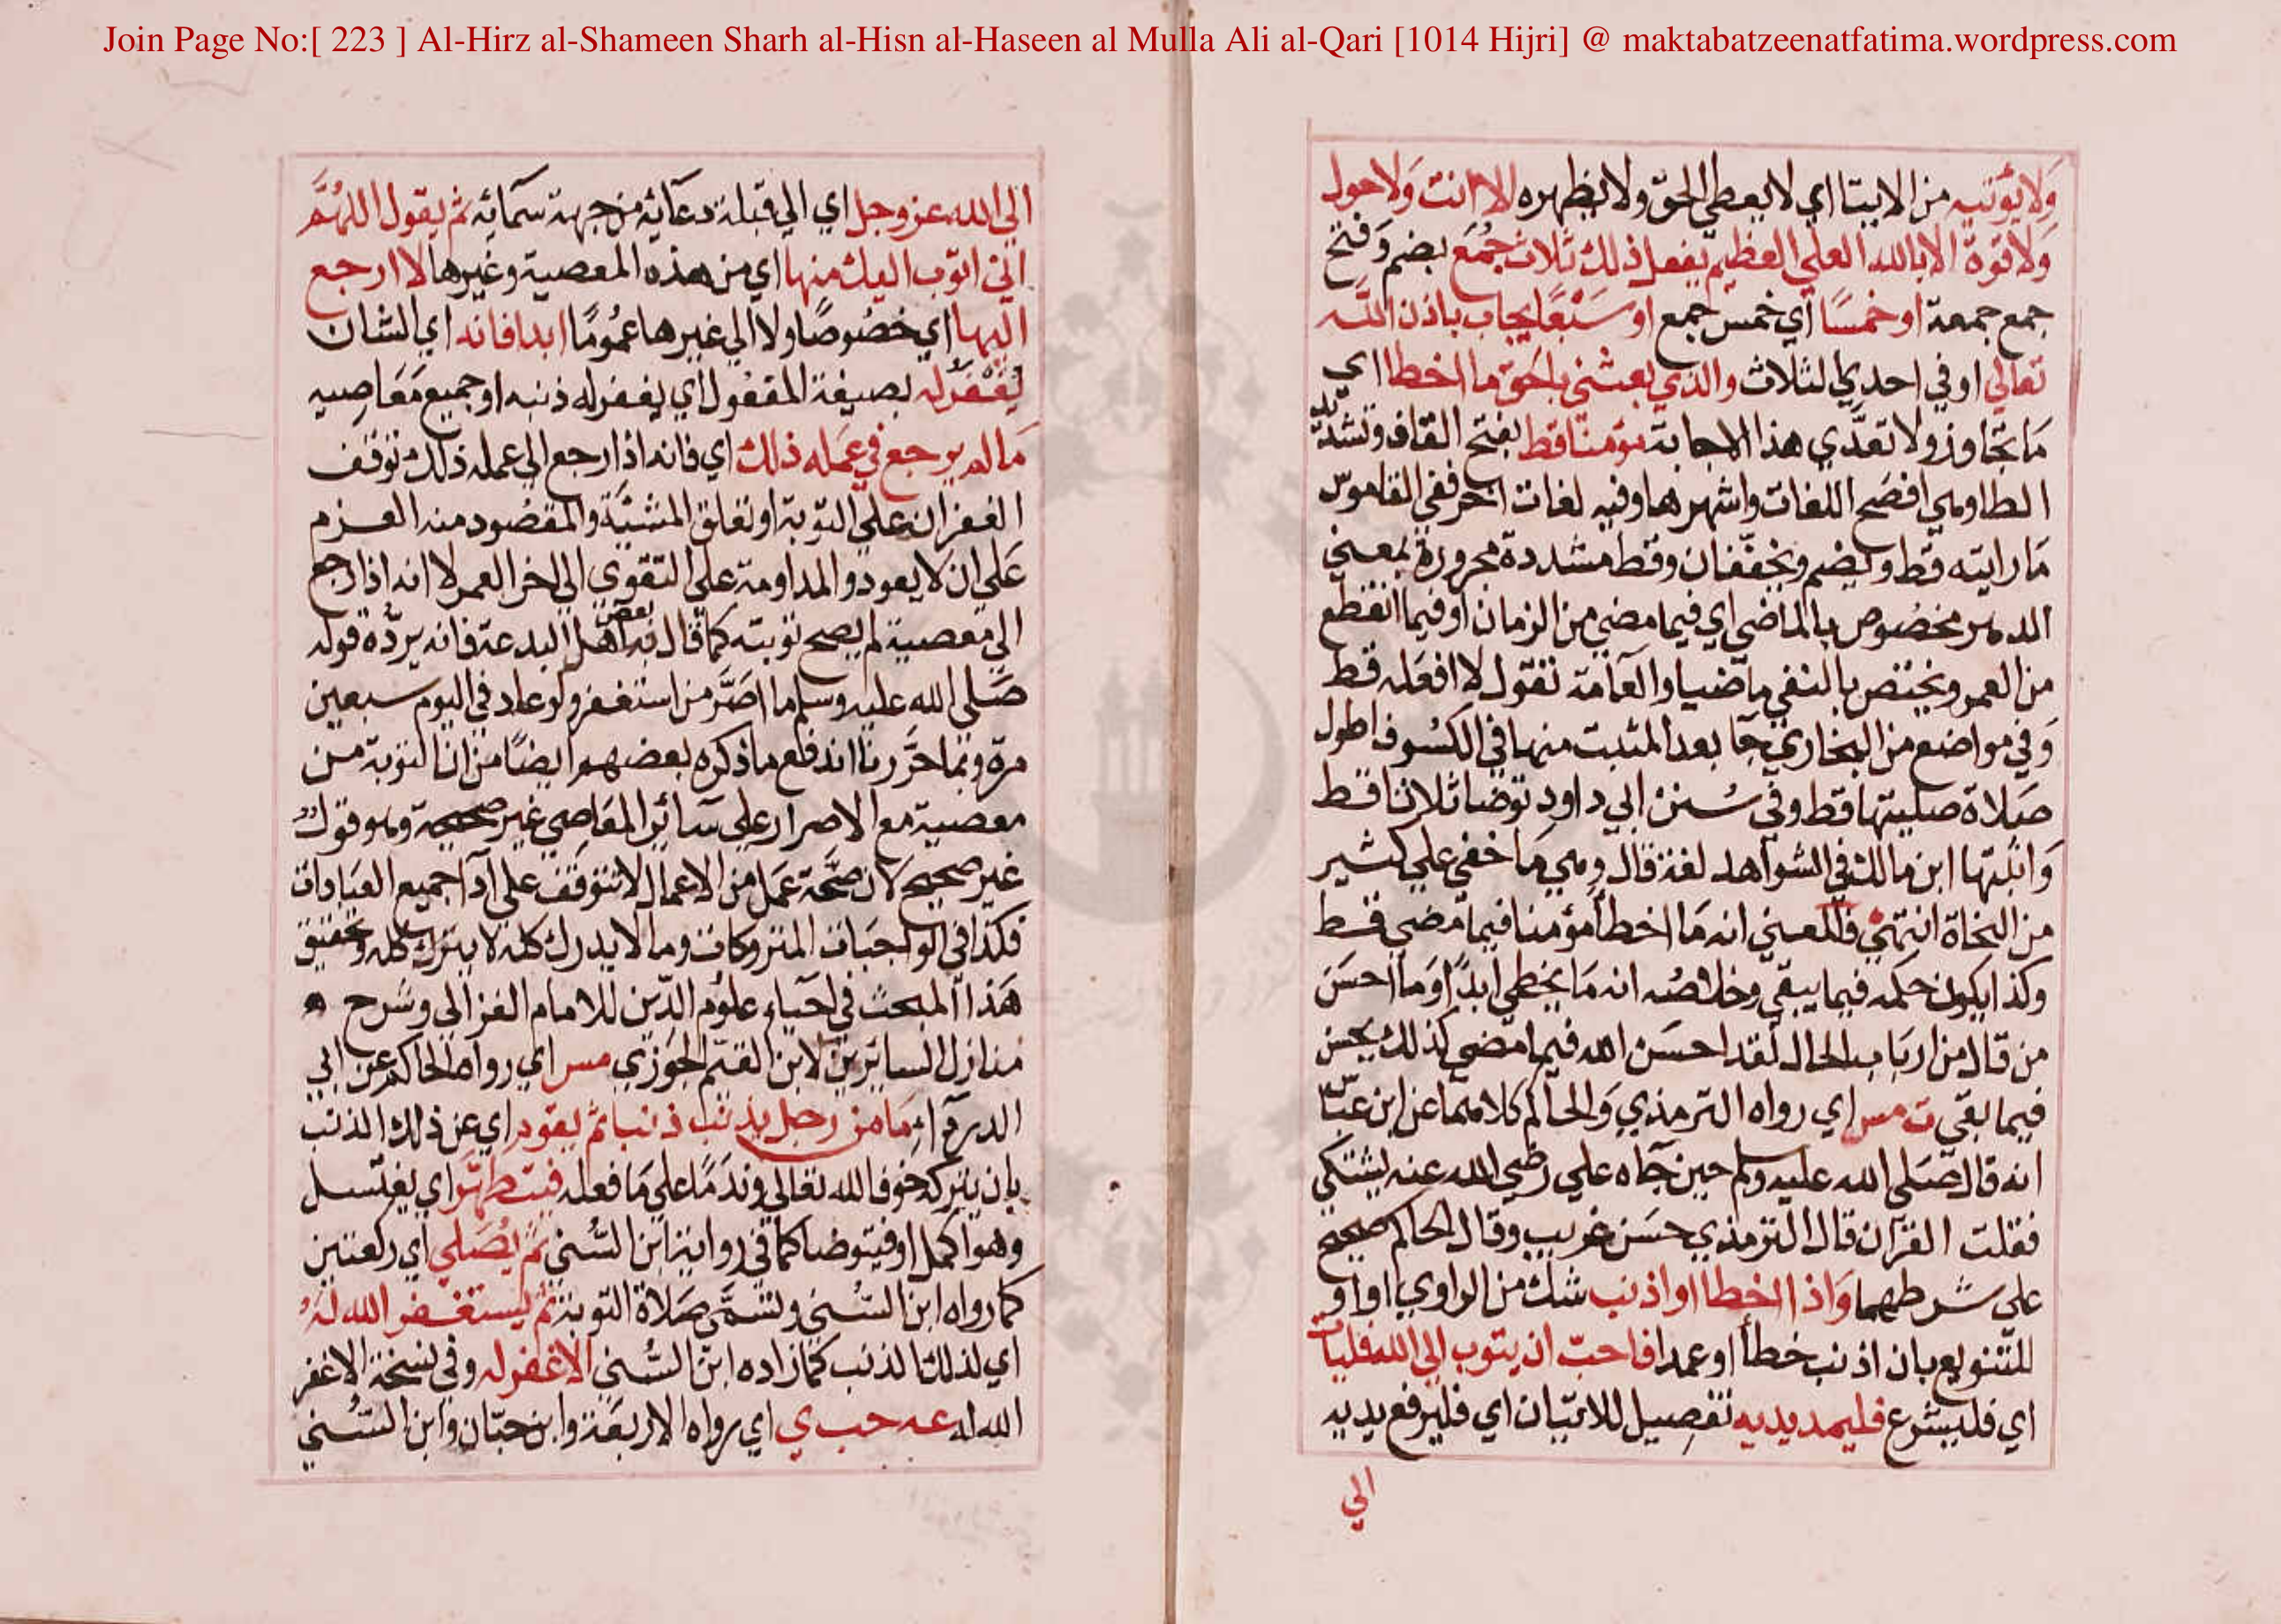 Join Page No:[ 223 ] Al-Hirz al-Shameen Sharh al-Hisn al-Haseen al Mulla Ali al-Qari [1014 Hijri] @ maktabatzeenatfatima.wordpress.com
ولا يؤتيه من الايتا اي لا يعطي الحق ولا يظهره الا انت ولا حول
ولا قوة الا بالله العلي العظيم يفعل ذلك ثلاث جُمَع بضم وفتح
جمع جمعة او خمسًا اي خمس جمع او سَبْعًا يجاب باذن الله
تعالى او في احدي الثلاث والذي بعثني بالحق ما اخطا اي
ما تجاوز ولا تعدَّي هذا الاجابة مؤمنا قط بفتح القاف وتشديد
الطا وهي افصح اللغات واشهرها وفيه لغات اخر ففي القاموس
ما رايته قط ويضم ويخففان وقط مشددة مجرورة بمعني
الدهر مخصوص بالماضي اي فيما مضي من الزمان او فيما انقطع
من العمر ويختص بالنفي ماضيا والعامة تقول لا افعله قط
وفي مواضع من البخاري جا بعد المثبت منها في الكسوف اطول
صلاة صليتها قط وفي سنن ابي داود توضا ثلاثا قط
واثبتها ابن مالك في الشواهد لغة قال وهي مما خفي علي كثير
من النحاة انتهي فالمعني انه ما اخطأ مؤمنا فيما مضي قط
وكذا يكون حكمه فيما يبقي وخلاصته انه ما يخطي ابدًا وما احسن
من قال من ارباب الحال لقد احسن الله فيما مضي كذلك يحسن
فيما بقي ت مس اي رواه الترمذي والحاكم كلاهما عن ابن عباس
انه قال صلي الله عليه وسلم حين جاه علي رضي الله عنه يشتكي
تفلت القرآن قال الترمذي حسن غريب وقال الحاكم صحيح
علي شرطهما واذا اخطا او اذنب شك من الراوي او او
للتنويع بان اذنب خطأ او عمدا فاحب ان يتوب الي الله فليات
اي فليشرع فليمد يديه تفصيل للاتيان اي فليرفع يديه
الي
الي الله عز وجل اي الي قبلة دعائه من جهة سمائه ثم يقول اللهم
اني اتوب اليك منها اي من هذه المعصية وغيرها لا ارجع
اليها اي خصوصًا ولا الي غيرها عمومًا ابدا فانه اي الشان
يُغْفَرُ له بصيغة المفعول اي يغفر له ذنبه او جميع معاصيه
ما لم يرجع في عمله ذلك اي فانه اذا رجع الي عمله ذلك توقف
الغفران علي التوبة او تعلق المشيّة والمقصود منه العزم
علي ان لا يعود والمداومة علي التقوي الي اخر العمر لا انه اذا رجع
الي معصية لم يصح توبته كما قال به بعض اهل البدعة فانه يردّه قوله
صلي الله عليه وسلم ما اصرّ من استغفر ولو عاد في اليوم سبعين
مرة وبما حررنا اندفع ما ذكره بعضهم ايضًا من ان التوبة من
معصية مع الاصرار علي سائر المعاصي غير صحيحة وهو قول
غير صحيح لان صحة عمل من الاعمال لا تتوقف علي آدا جميع العبادات
فكذا في الواجبات المتروكات وما لا يدرك كله لا يترك كله وتحقيق
هذا المبحث في احياء علوم الدين للامام الغزالي وشرح
منازل السائرين لابن القيم الجوزي مس اي رواه الحاكم عن ابي
الدرداء ما من رجل يذنب ذنبا ثم يقوم اي عن ذلك الذنب
بان يتركه خوفا لله تعالي وندمًا علي ما فعله فيتطهر اي يغتسل
وهو اكمل او فيتوضا كما في رواية ابن السُّني ثم يُصَلي اي ركعتين
كما رواه ابن السُّني وتسمَّي صلاة التوبة ثم يستغفر الله لهُ
اي لذلك الذنب كما زاده ابن السُّني الا غفر له وفي نسخة الا غفر
الله له عه حب ي اي رواه الاربعة وابن حبّان وابن السُّني